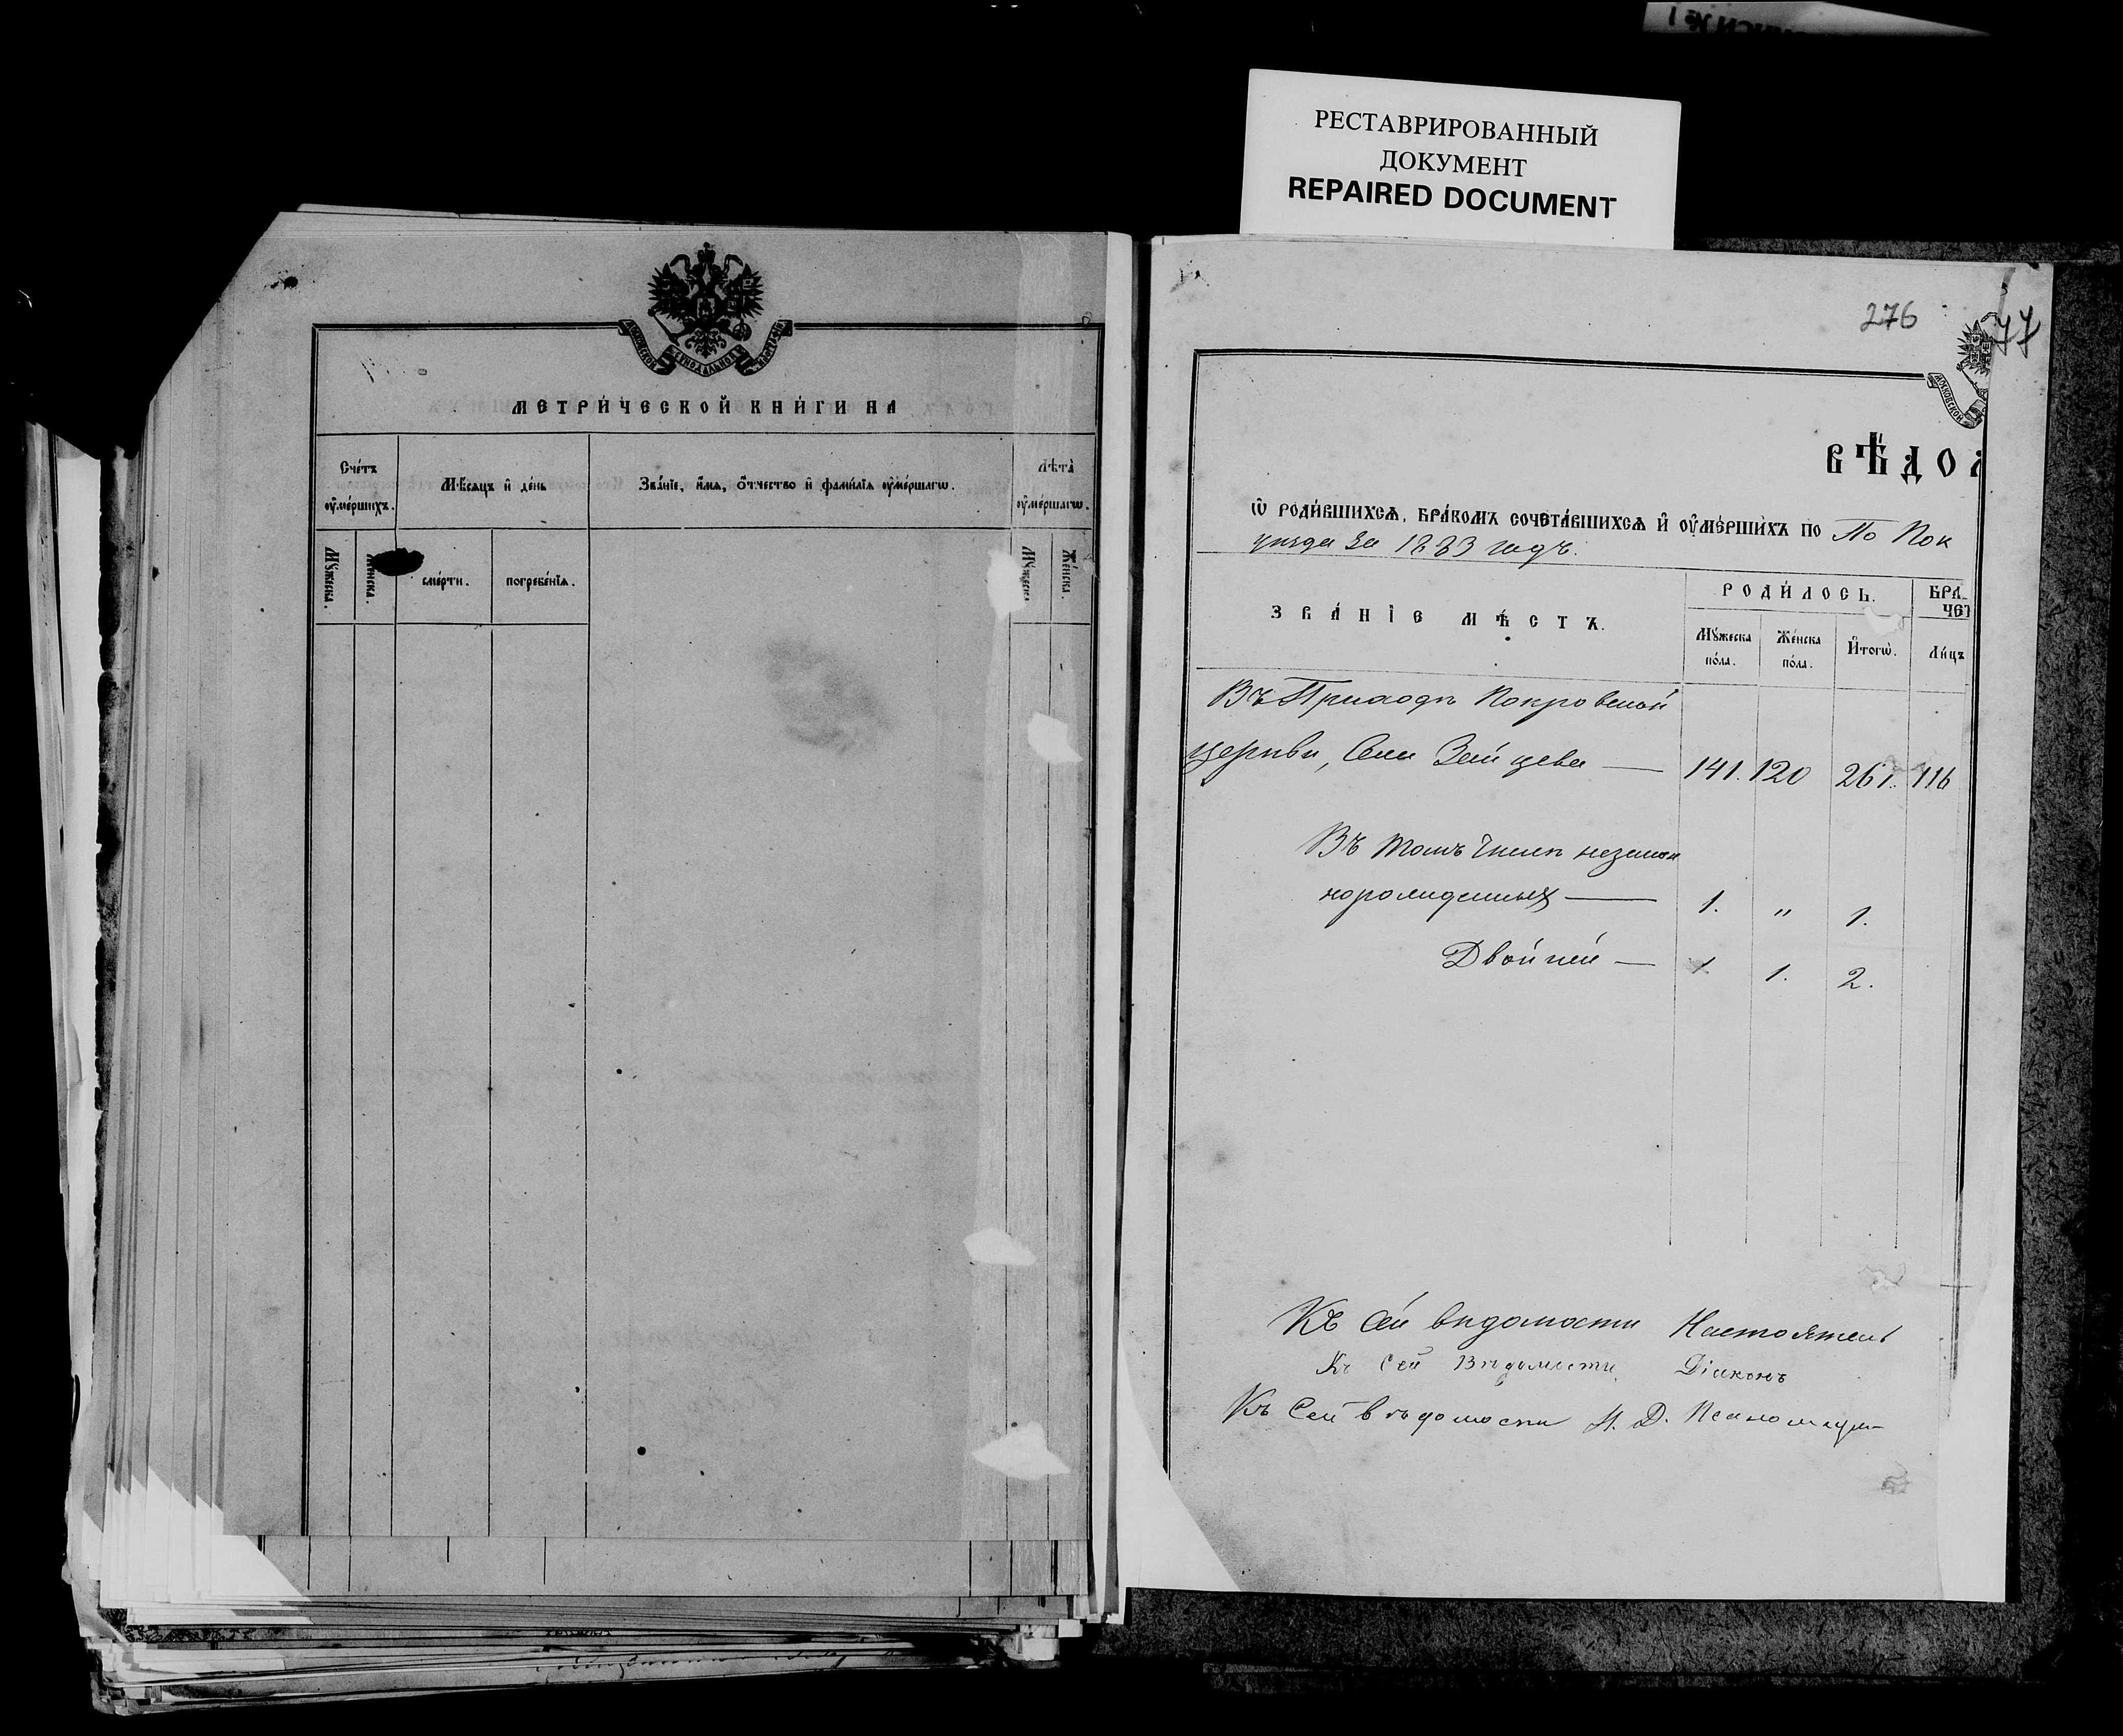 РЕСТАВРИРОВАННЫЙ
ДОКУМЕНТ
REPAIRED DOCUMENT
МОСКОВСКОЙ СѴНОДАЛЬНОЙ
МЕТРИ́ЧЕСКОЙ КНИ́ГИ НА
Сче́тъ ᲂу҆ме́ршихъ.
Мѣ́сяцъ и҆ де́нь
Зва́нїе, и҆́мѧ, ѻ҆́тчество и҆ фами́лїѧ ᲂу҆ме́ршагѡ.
Лѣ́та ᲂу҆ме́ршагѡ.
Мꙋ́жеска.
Же́нска.
сме́рти.
погребе́нїѧ.
Мꙋ́жеска
Же́нска.
276
77
МОСКОВСКОЙ
ВѢ́ДО
Ѡ҆ РОДИ́ВШИХСѦ, БРА́КОМЪ СОЧЕТА́ВШИХСѦ И҆ ОУ҆МЕ́РШИХЪ ПО По Пок
уѣзда за 1883 годъ.
ЗВА́НЇЕ МѢ́СТЪ.
РОДИ́ЛОСЬ.
БРА-
ЧЕТ
Мꙋ́жеска по́ла.
Же́нска по́ла.
И҆тогѡ̀.
Ли́цъ
Въ Приходѣ Покровской
церкви, Села Зайцева — 141. 120 261. 116
Въ томъ числѣ незакон
норожденныхъ — 1. " 1.
Двойней — 1. 1. 2.
Къ сей вѣдомости Настоятель
Къ сей Вѣдомости Діаконъ
Къ Сей вѣдомости И. Д. Псаломщи